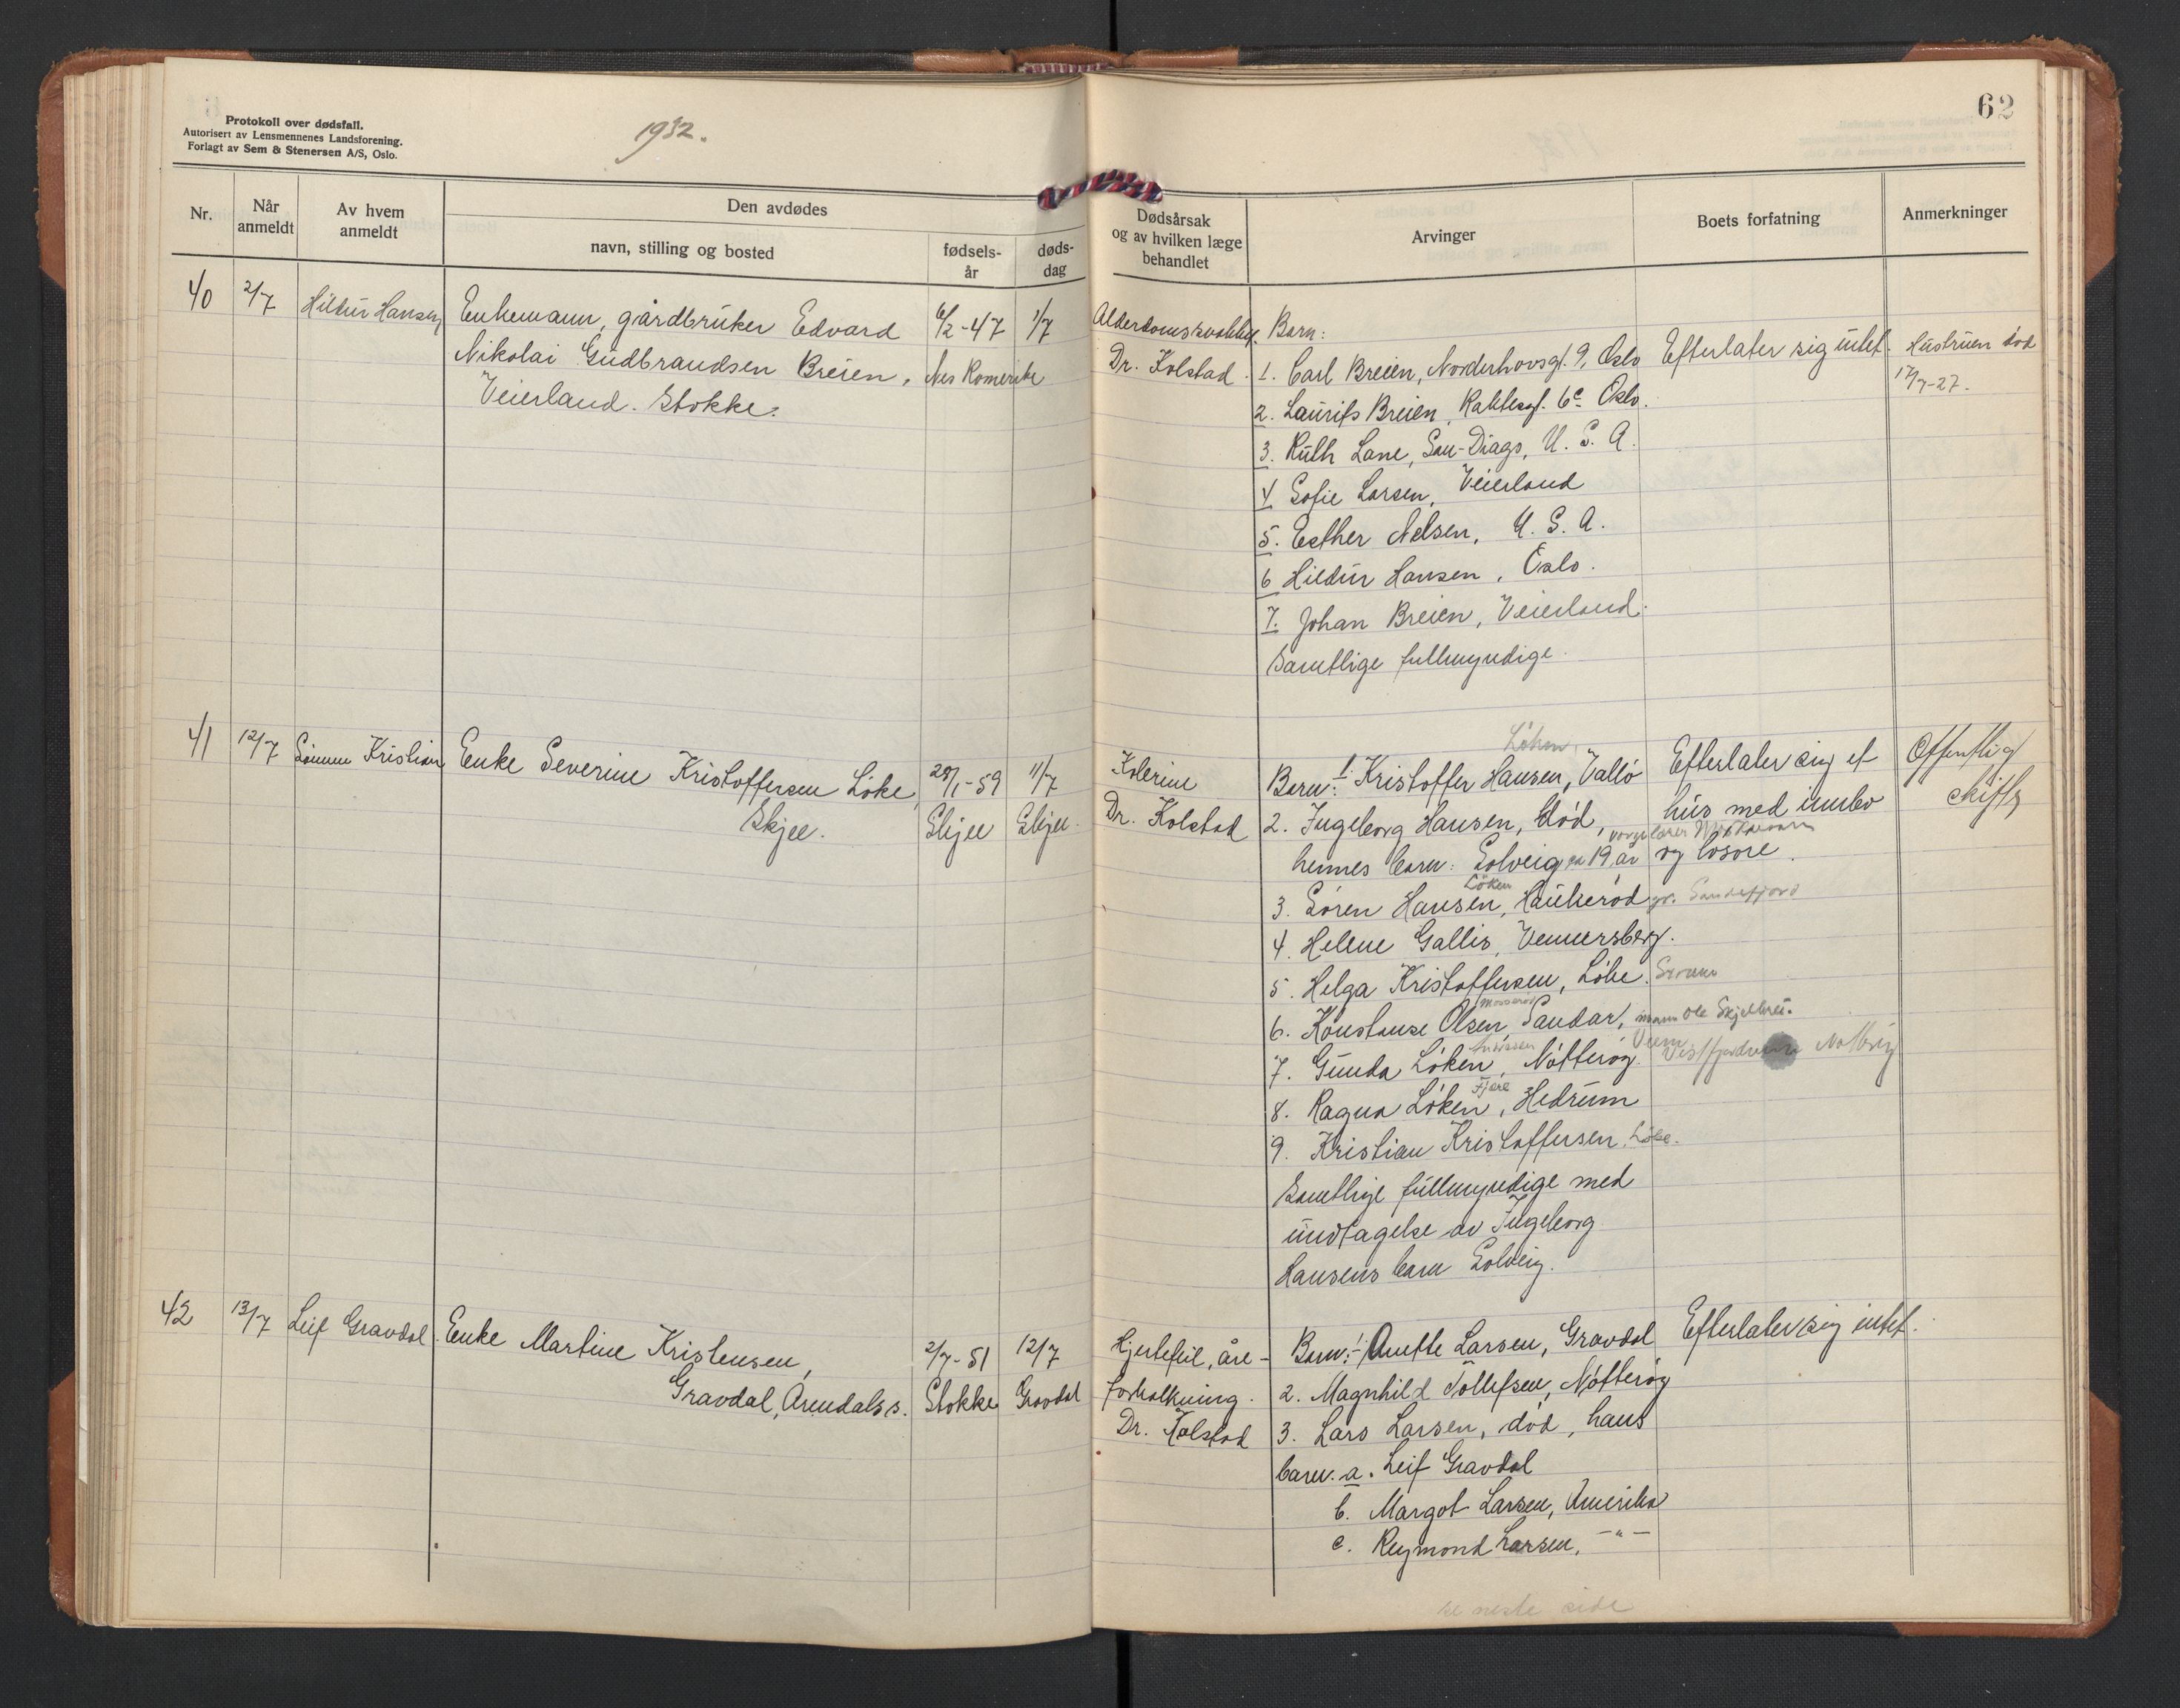 Protokoll over dødsfall.
Autorisert av Lensmennenes Landsforening.
Forlagt av Sem & Stenersen A/S, Oslo.
1932.
62
Nr.
Når anmeldt
Av hvem anmeldt
Den avdødes
navn, stilling og bosted
fødsels-år
døds-dag
Dødsårsak
og av hvilken læge
behandlet
Arvinger
Boets forfatning
Anmerkninger
40 2/7 Hildur Hansen
Enkemann, gårdbruker Edvard
Nikolai Gudbrandsen Breien,
Veierland. Stokke.
6/2-47 1/7
Nes Romerike
Alderdomssvakhet.
Dr. Kolstad.
Barn:
1. Carl Breien, Norderhovsgt. 9, Oslo
2. Laurits Breien, 6c Oslo.
3. Ruth Lane, San-Diago, U. S. A.
4. Sofie Larsen, Veierland
5. Esther Nelsen, U. S. A.
6 Hildur Hansen, Oslo.
7. Johan Breien, Veierland.
Samtlige fullmyndige.
Efterlater sig intet.
Hustruen død
17/7-27.
41 12/7 Kristian
Enke Severine Kristoffersen Löke,
Skjee.
28/1-59 11/7
Skjee Skjee.
Kolerine
Dr. Kolstad
Löken,
Barn: 1. Kristoffer Hansen, Vallö
2. Ingeborg Hansen, död,
hennes barn: Solveig ca 19 år
Löken
3. Sören Hansen, Haukeröd pr. Sandefjord
4. Helene Gallis, Vemmersberg.
5. Helga Kristoffersen, Löke.
Mosserød
6. Konstanse Olsen, Sandar, mann Ole
7. Gunda Löken, Nötteröy.
Fjære
8. Ragna Löken, Hedrum
9. Kristian Kristoffersen, Löke.
Samtlige fullmyndige med
undtagelse av Ingeborg
Hansens barn Solveig.
Efterlater sig et
hus med innbo
og lösöre.
Offentlig
skifte
42 13/7 Leif Gravdal.
Enke Martine Kristensen,
Gravdal, Arendals s.
2/7-51 12/7
Stokke Gravdal
Hjertefeil, åre-
forkalkning.
Dr. Kolstad
Barn: 1. Anette Larsen, Gravdal
2. Magnhild Tollefsen, Nötteröy
3. Lars Larsen, död, hans
barn. a. Leif Gravdal
b. Margot Larsen, Amerika
c. Reymond Larsen, -"-
Efterlater sig intet.
se neste side